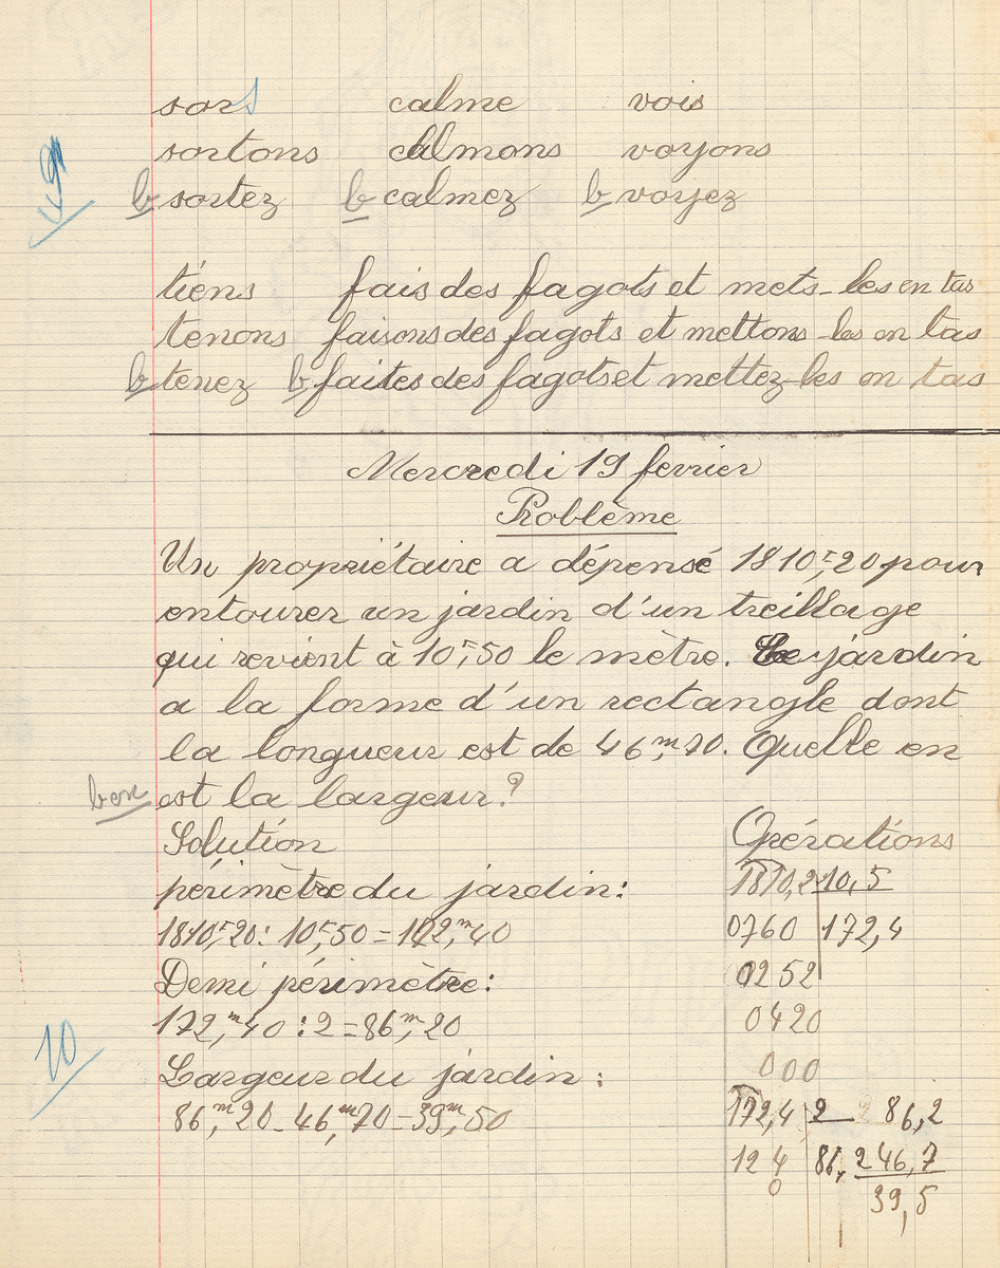 sors calme vois
sortons calmons voyons
b sortez b calmez b voyez
9
tiens fais des fagots et mets-les en tas
tenons faisons des fagots et mettons-les en tas
b tenez b faites des fagots et mettez-les en tas
Mercredi 19 fevrier
Problème
Un propriétaire a dépensé 1810F,20 pour
entourer un jardin d'un treillage
qui revient à 10F,50 le mètre. Le jardin
a la forme d'un rectangle dont
la longueur est de 46m,70. Quelle en
bon est la largeur.?
Solution Opérations
périmètre du jardin: 1810,2 10,5
1810F,20: 10F,50 = 172,m40 0760 172,4
Demi périmètre: 0252
172,m40 : 2 = 86,m20 0420
10
Largeur du jardin : 000
86,m20 - 46,m70 = 39m,50 172,4 2 86,2
12 4 86,2 46,7
0 39,5